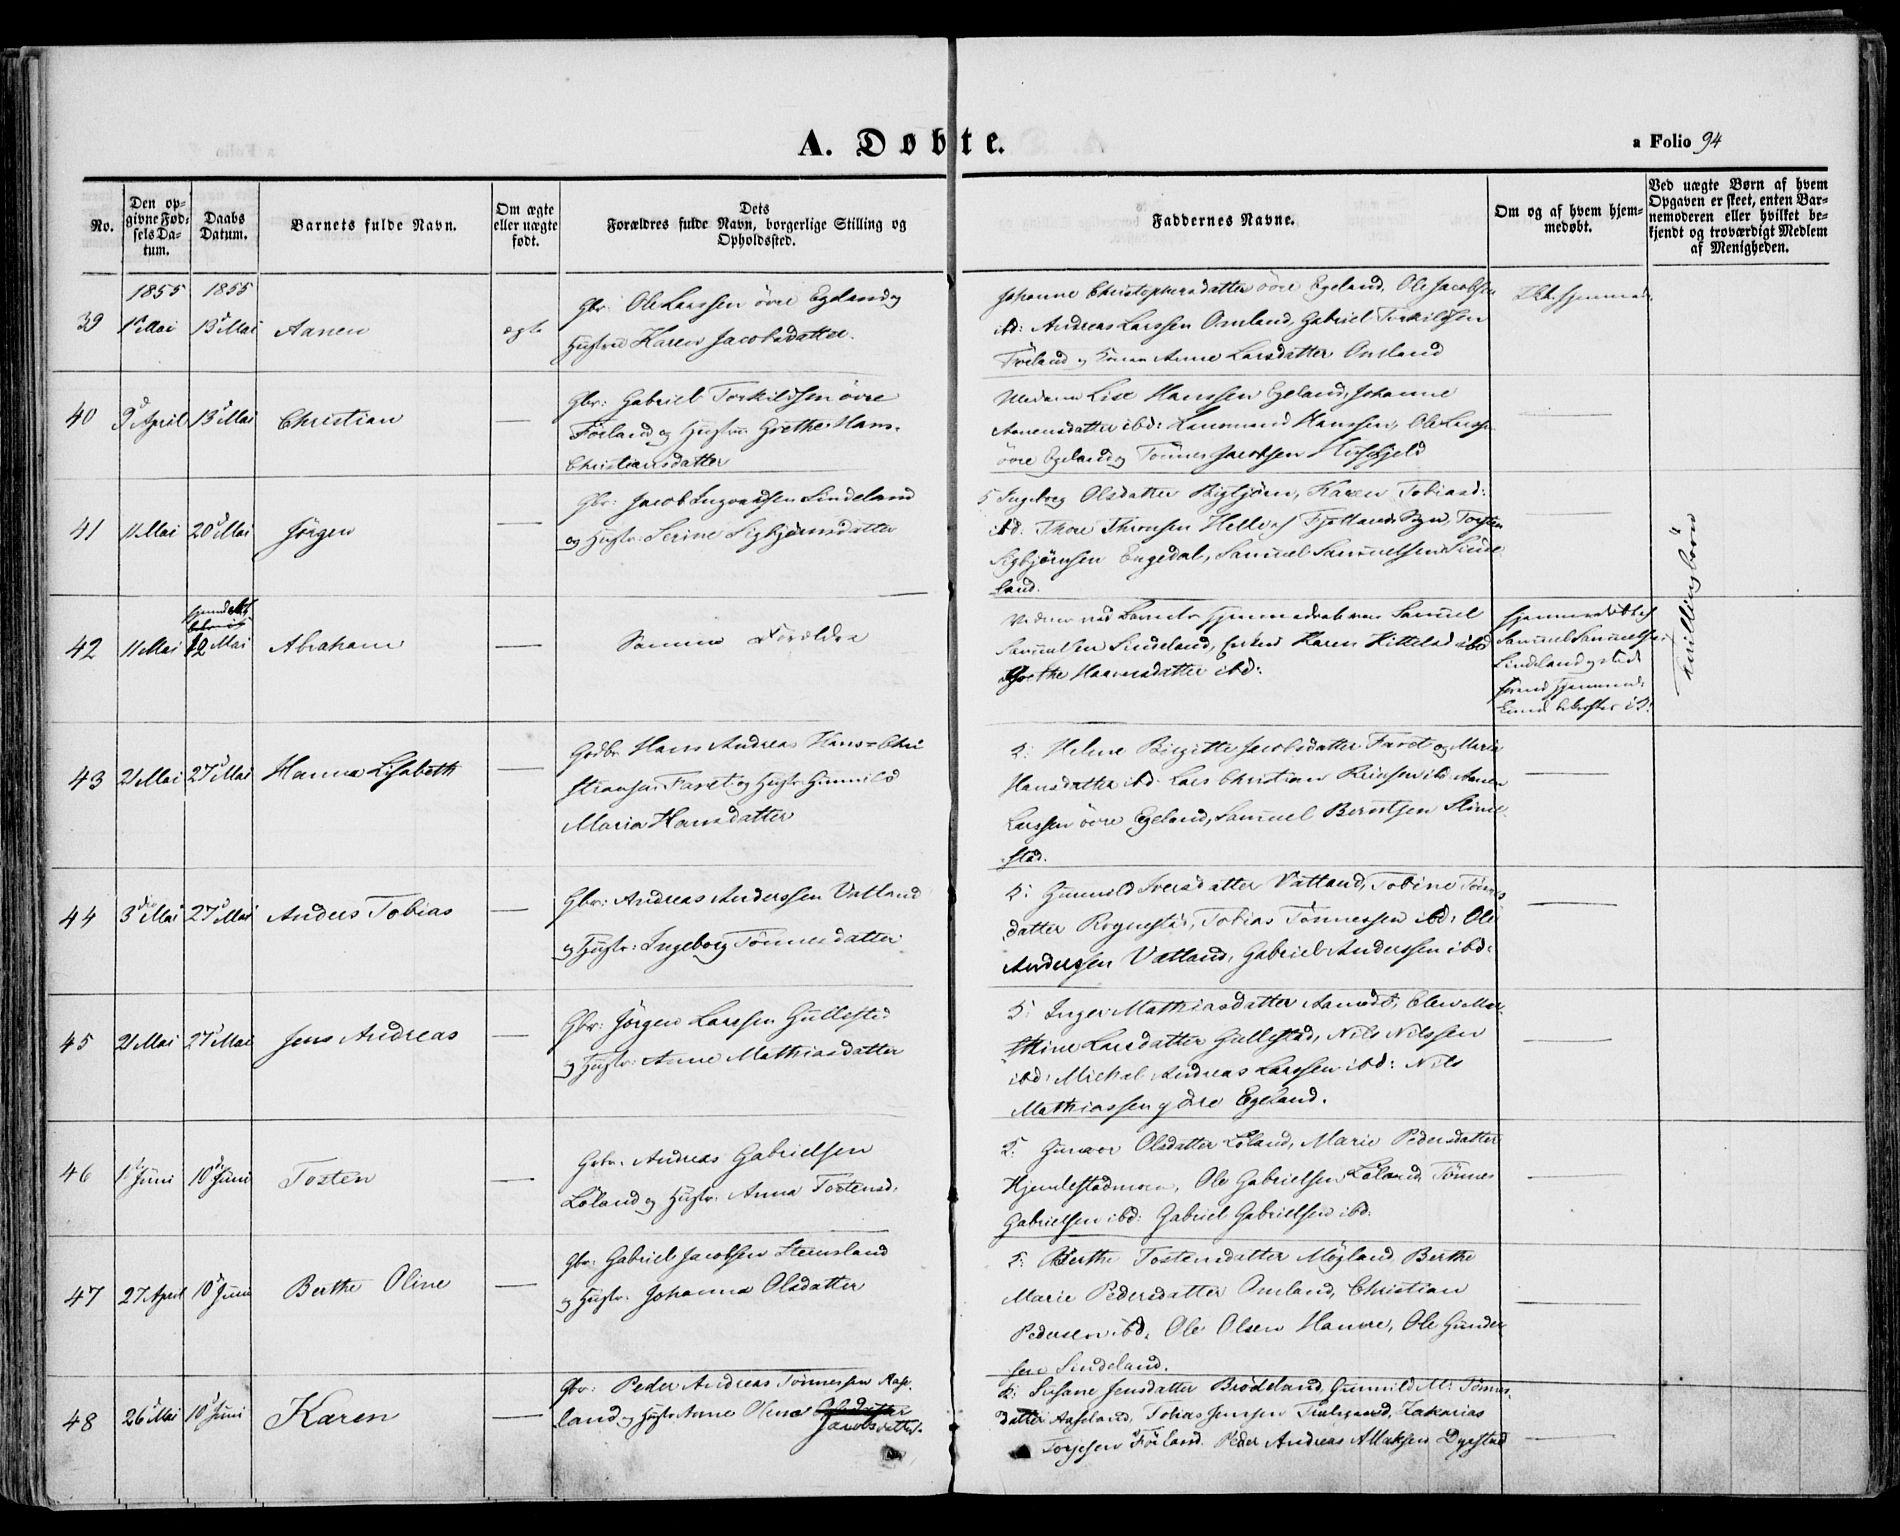 A. Døbte.
a Folio 94
No.
Den op-
givne Fød-
sels Da-
tum.
Daabs
Datum.
Barnets fulde Navn.
Om ægte
eller uægte
født.
Dets
Forældres fulde Navn, borgerlige Stilling og
Opholdssted.
Faddernes Navne.
Om og af hvem hjem-
medøbt.
Ved uægte Børn af hvem
Opgaven er skeet, enten Bar-
nemoderen eller hvilket be-
kjendt og troværdigt Medlem
af Menigheden.
1855 1855
39 1 Mai 13 Mai Aanen ægte
Gbr: Ole Larssen övre Egeland og
Hustru Karen Jacobsdatter.
Johanne Christophersdatter övre Egeland, Ole Jacobsen
ibd: Andreas Larssen Omland, Gabriel Torkildsen
Förland og Anne Larsdatter Omland
40 9 April 13 Mai Christian —
Gbr: Gabriel Torkildsen övre
Förland og Hustru Grethe Hans-
Christiansdatter
Madame Lise Hanssen Egeland, Johanne
Aanensdatter ibd: Lensmand Hanssen, Ole Larssen
övre Egeland og Tönnes Jacobsen
41 11 Mai 20 Mai Jörgen —
Gbr: Jacob Ingvaldsen Sindeland
og Hustr: Serine Sigbjörnsdatter
5 Ingeborg Olsdatter Bigtjörn, Karen Tobiasd:
ibd: Thore Thronsen Helle af Fjotlands Sogn, Torsten
Sigbjörnsen Engedal, Samuel Samuelsen Sinde-
land.
42 11 Mai 12 Mai Abraham —
Samme Forældre
Samuel
Samuelsen Sindeland, Karen Kittelsd ibd
Grethe Haaversdatter ibd:
Hjemmedöbt af
Samuel Samuelsen
Sindeland
Tvillingbörn
43 21 Mai 27 Mai Hanna Lisabeth —
Gbr Hans Andreas Hans-Chri
stiansen Faret og Hustr: Gunnild
Maria Hansdatter
5: Helene Birgitte Jacobsdatter Faret og Maria
Hansdatter ibd. Lars Christian Reiersen ibd Aanen
Larssen övre Egeland, Samuel Berntsen Slime-
stad.
44 3 Mai 27 Mai Anders Tobias —
Gbr: Andreas Anderssen Vatland
og Hustr: Ingeborg Tönnesdatter
5: Gunnild Iversdatter Vatland, Tobine Tönnes
datter Rognestad, Tobias Tönnessen ibd: Ole
Anderssen Vatland, Gabriel Anderssen ibd:
45 21 Mai 27 Mai Jens Andreas —
Gbr: Jörgen Larssen Gullestad
og Hustr: Anne Mathiasdatter
5: Inger Mathiasdatter Aamodt, Elen Mar-
thine Larsdatter Gullestad, Nils Nilssen
ibd: Michal Andreas Larssen ibd: Nils
Mathiassen ydre Egeland.
46 1 Juni 10 Juni Tosten —
Gbr: Andreas Gabrielsen
Löland og Hustr: Anna Tostensd:
5: Gunvor Olsdatter Löland, Marie Pedersdatter
Hjemlestadmoen, Ole Gabrielsen Löland, Tönnes
Gabrielsen ibd: Gabriel Gabrielsen ibd:
47 27 April 10 Juni Berthe Oline —
Gbr: Gabriel Jacobsen Steensland
og Hustr: Johanna Olsdatter
5: Berthe Tostensdatter Mögland, Berthe
Marie Pedersdatter Omland, Christian
Pedersen ibd: Ole Olsen Hamre, Ole Gunder
sen Sindeland.
48 26 Mai 10 Juni Karen —
Gbr: Peder Andreas Tönnessen Aase-
land og Hustr Anne Olene
Jacobsdatter.
5: Susane Jensdatter Brödeland, Gunnild M: Tönnes-
datter Aaseland, Tobias Jensen, Zakarias
Torjesen Förland. Peder Andreas Dyrstad